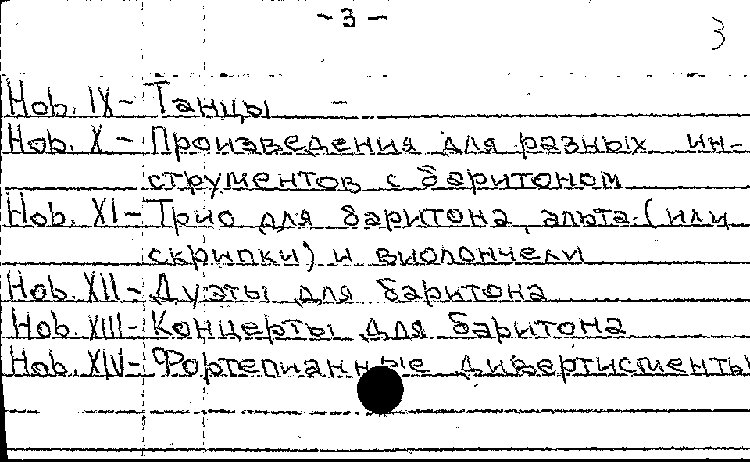 - 3 -
3
Нов. IX - Танцы -
Нов. X - Произведения для разных ин-
струментов с баритоном
Нов. XI - Трио для баритона, альта (или
скрипки) и виолончели
Нов. XII - Дуэты для баритона
Нов. XIII - Концерты для баритона
Нов. XIV - Фортепианные дивертисменты